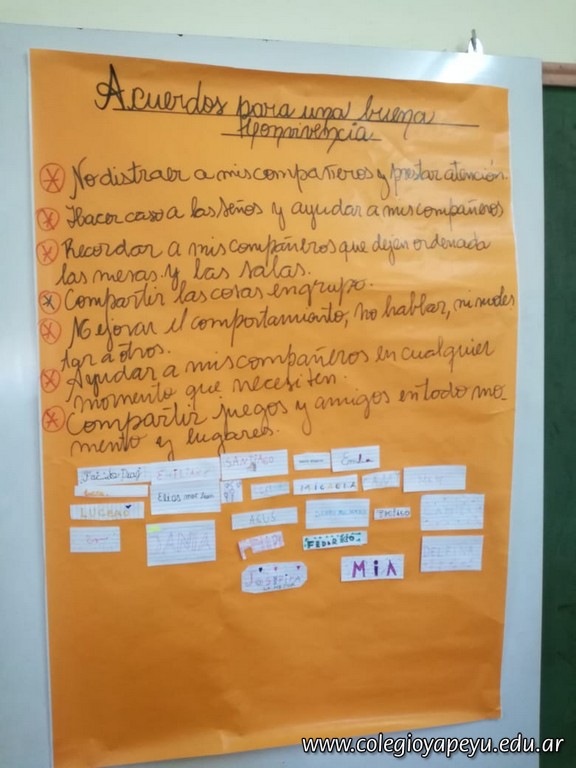 Acuerdos para una buena
Convivencia
No distraer a mis compañeros y prestar atención.
Hacer caso a las seños y ayudar a mis compañeros
Recordar a mis compañeros que dejen ordenada
las mesas y las salas.
Compartir las cosas en grupo.
Mejorar el comportamiento, no hablar, ni moles
tar a otros.
Ayudar a mis compañeros en cualquier
momento que necesiten.
Compartir juegos y amigos en todo mo-
mento y lugares.
SANTIAGO
Emilia
MICAELA
LUCIANO
AGUS
FEDERICO
DELFINA
Josefina
MiA
www.colegioyapeyu.edu.ar